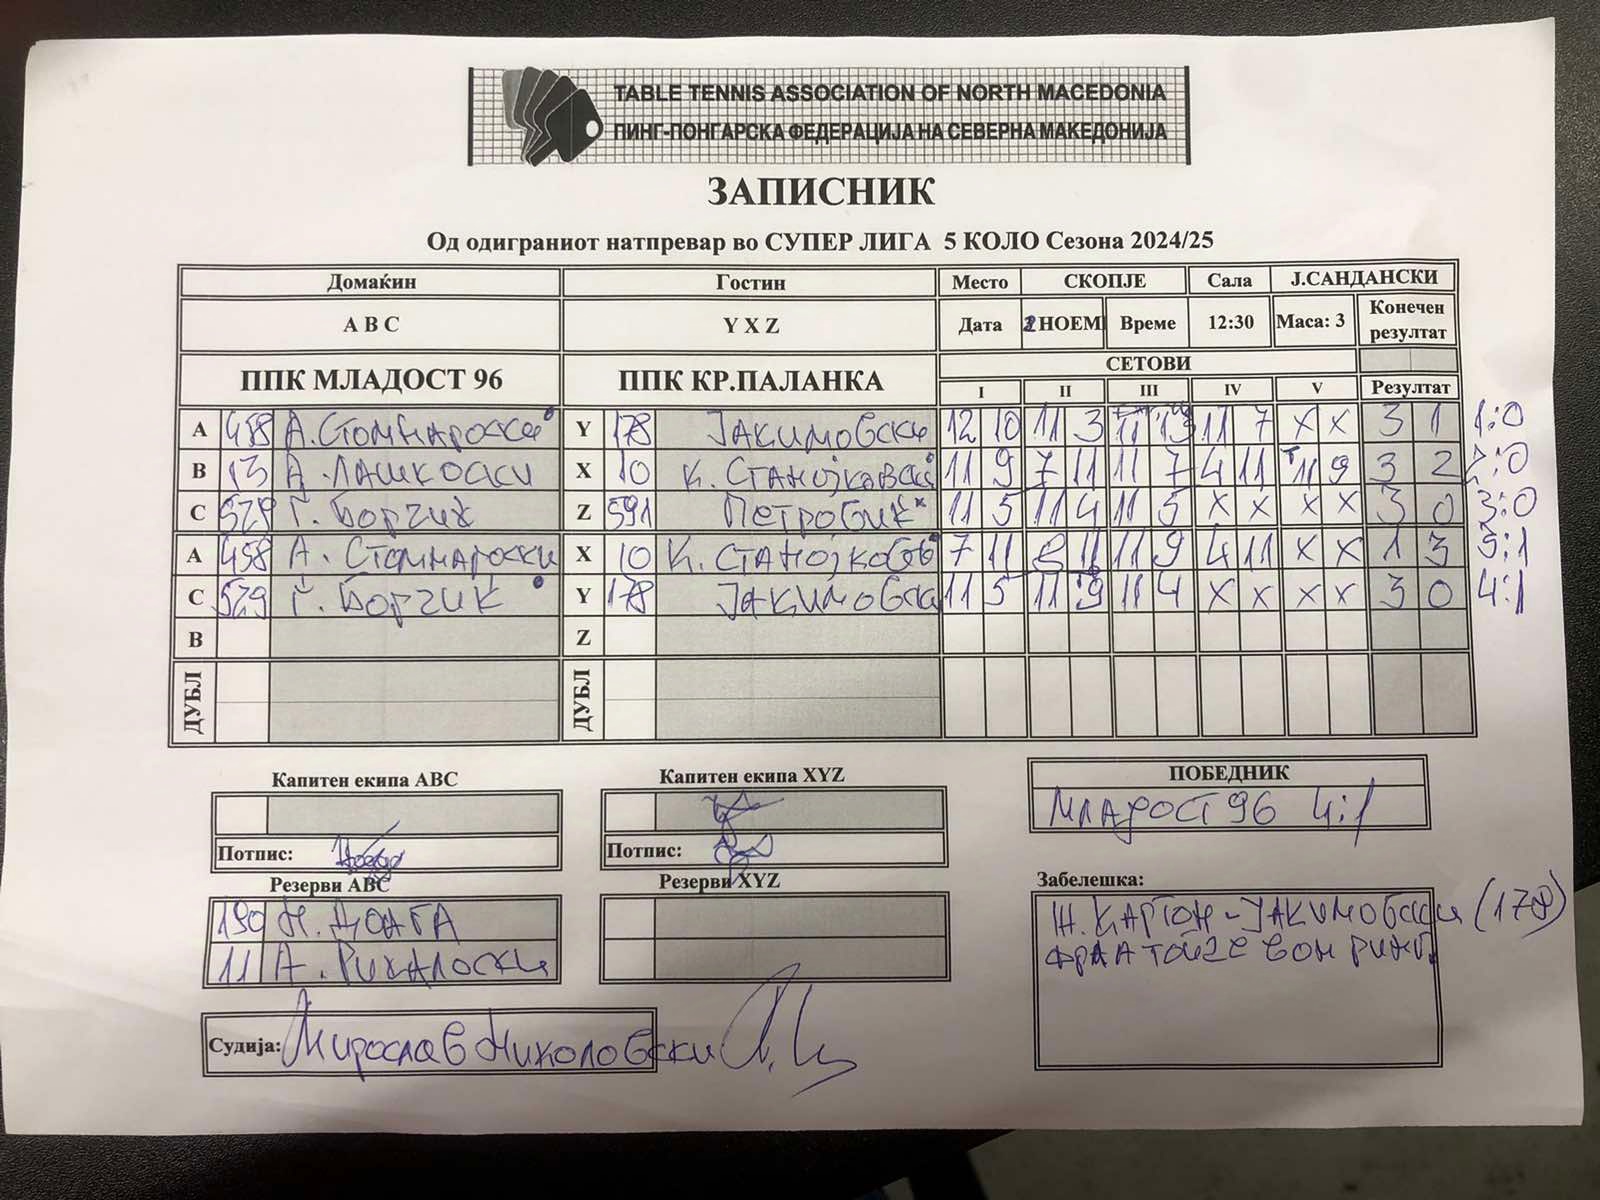 TABLE TENNIS ASSOCIATION OF NORTH MACEDONIA
ПИНГ-ПОНГАРСКА ФЕДЕРАЦИЈА НА СЕВЕРНА МАКЕДОНИЈА
ЗАПИСНИК
Од одиграниот натпревар во СУПЕР ЛИГА 5 КОЛО Сезона 2024/25
Домаќин Гостин Место СКОПЈЕ Сала Ј.САНДАНСКИ
A B C Y X Z Дата НОЕМ Време 12:30 Маса: 3 Конечен резултат
ППК МЛАДОСТ 96 ППК КР.ПАЛАНКА СЕТОВИ
I II III IV V Резултат
A 458 А. Y 178 Јакимовски 12 10 11 3 11 13 11 7 X X 3 1 1:0
B 13 А. X 10 К. 11 9 7 11 11 7 4 11 11 9 3 2 2:0
C 529 Г. Z 591 11 5 11 4 11 5 X X X X 3 0 3:0
A 458 А. Стомнароски X 10 К. 7 11 8 11 11 9 4 11 X X 1 3 3:1
C 529 Г. Y 178 11 5 11 9 11 4 X X X X 3 0 4:1
B Z
ДУБЛ ДУБЛ
Капитен екипа ABC Капитен екипа XYZ ПОБЕДНИК
МЛАДОСТ 96 4:1
Потпис: Потпис:
Резерви ABC Резерви XYZ Забелешка:
190 Н.
11 А.
Ж. КАРТОН - ЈАКИМОВСКИ (178)
ФРЛА ТОПЧЕ ВОН РИНГ.
Судија: Мирослав Николовски